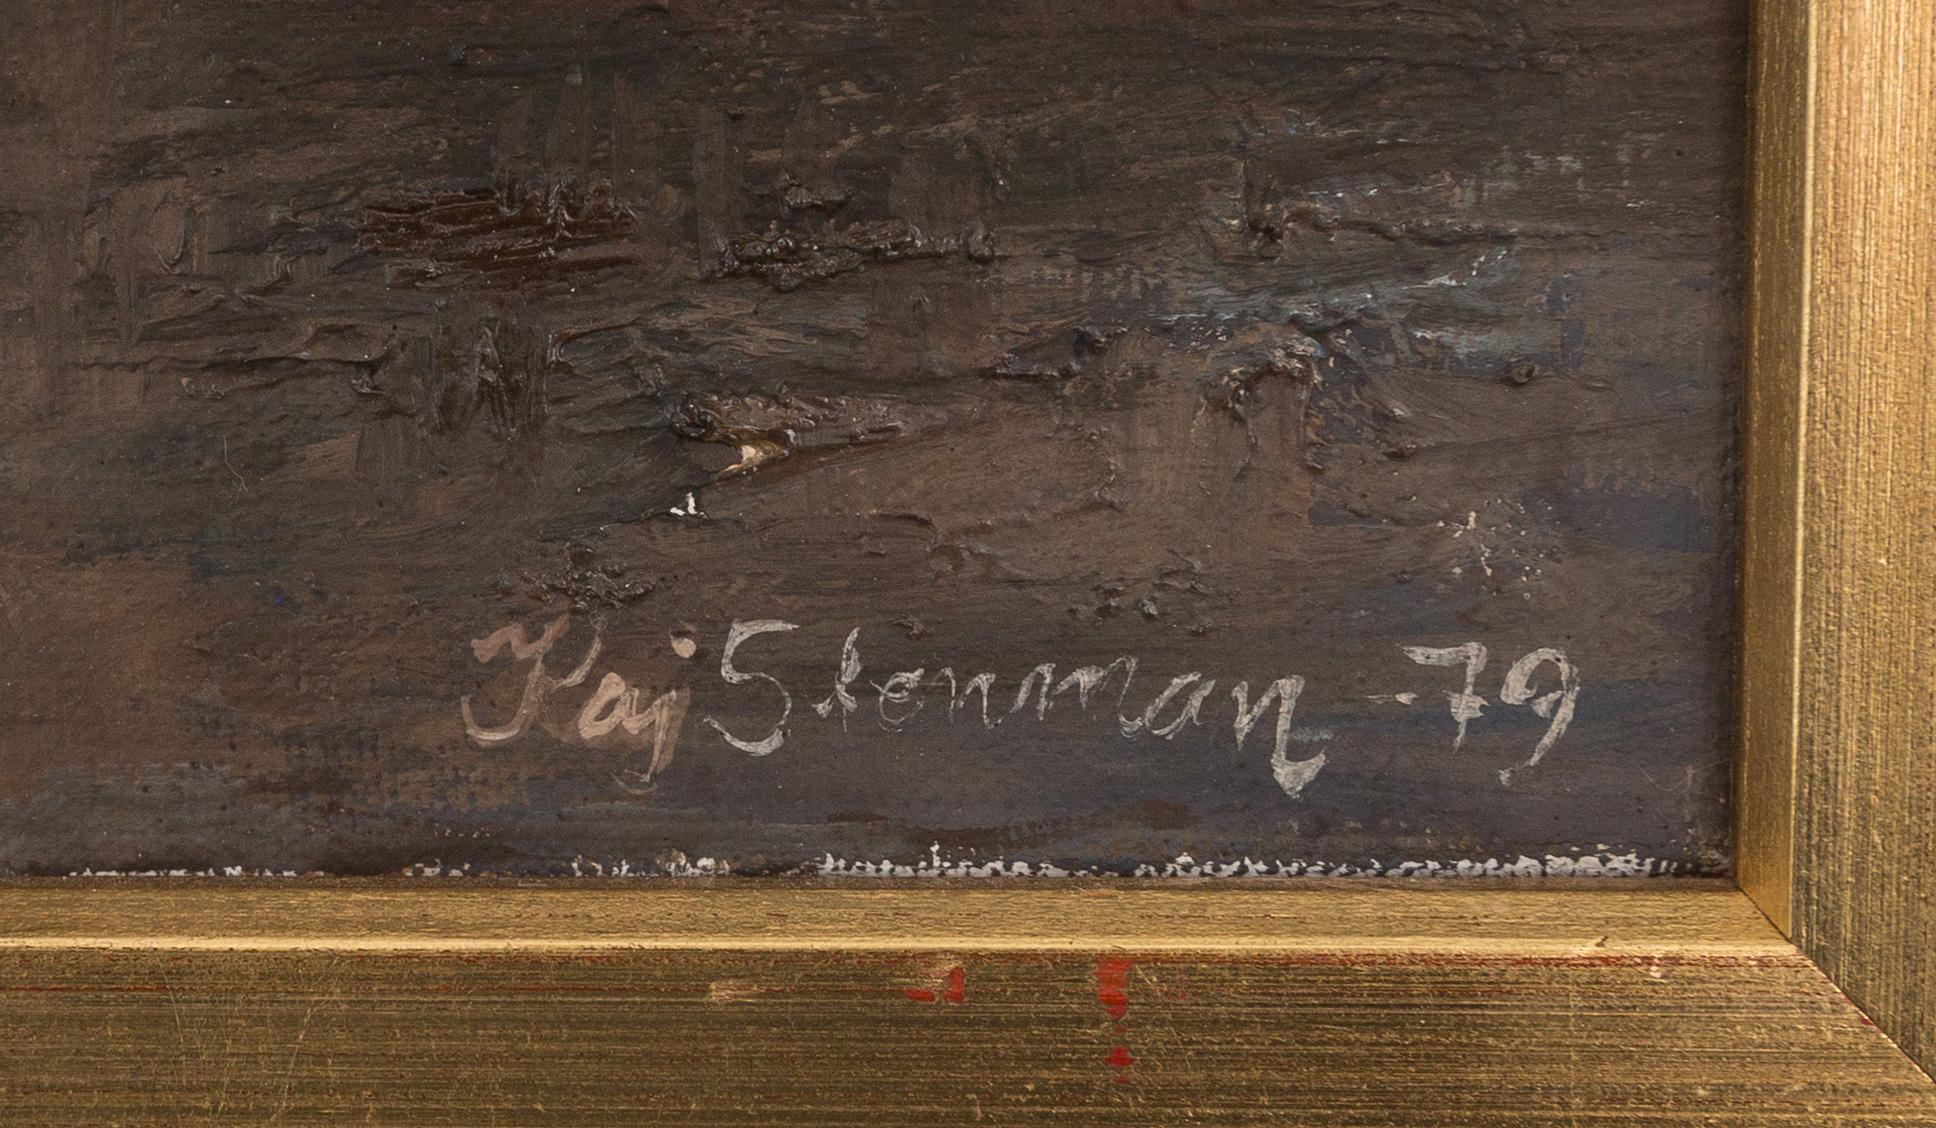 Kaj Stenman -79